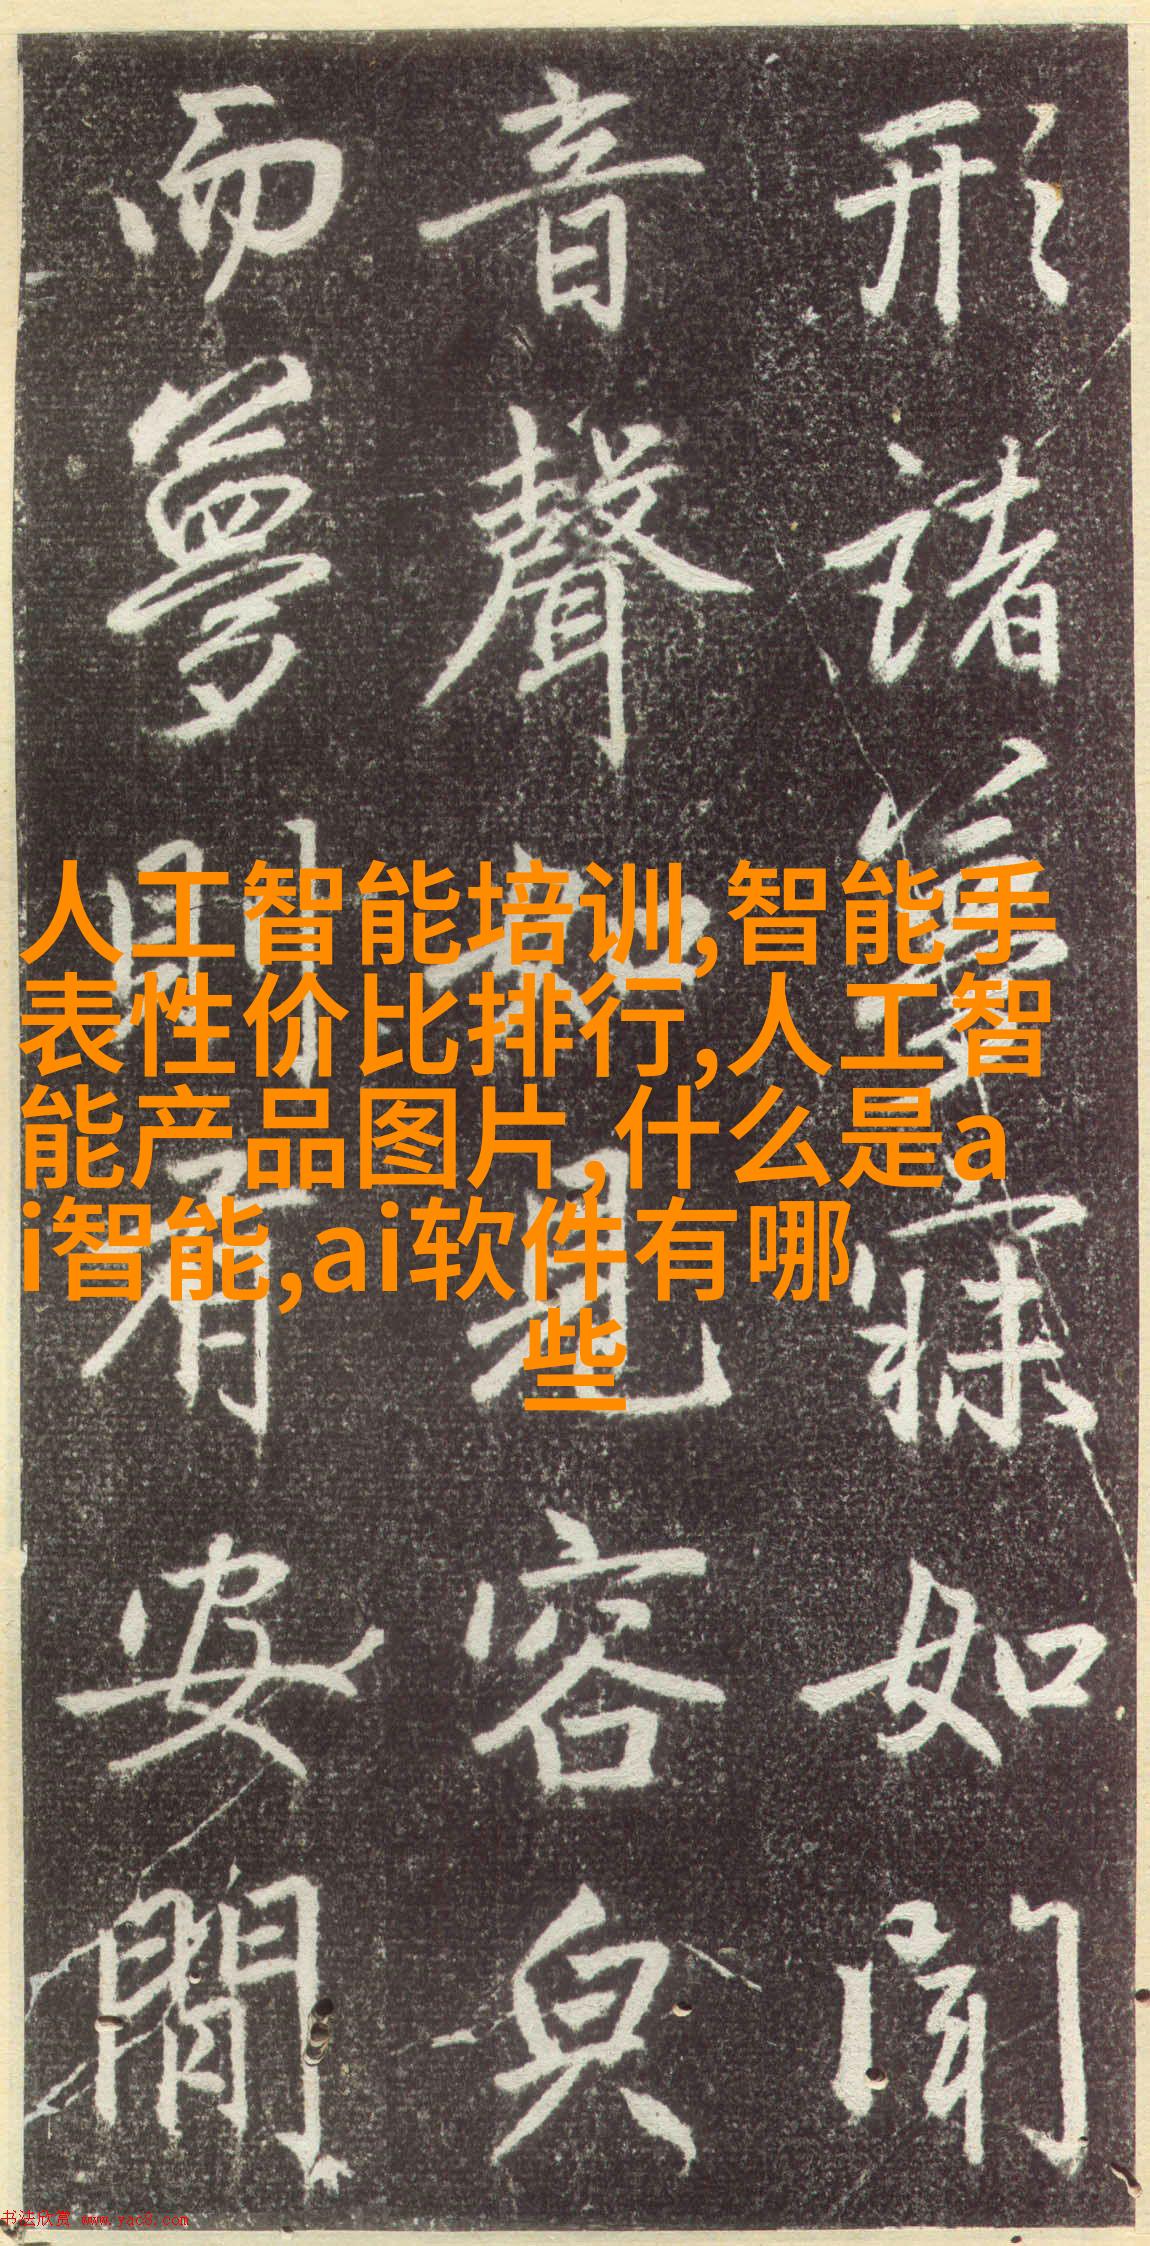 形諸夢寐如聞
音聲如見容皃
而夢則有安閒
人工智能培训,智能手
表性价比排行,人工智
能产品图片,什么是a
i智能,ai软件有哪
些
书法欣赏 www.yac8.com